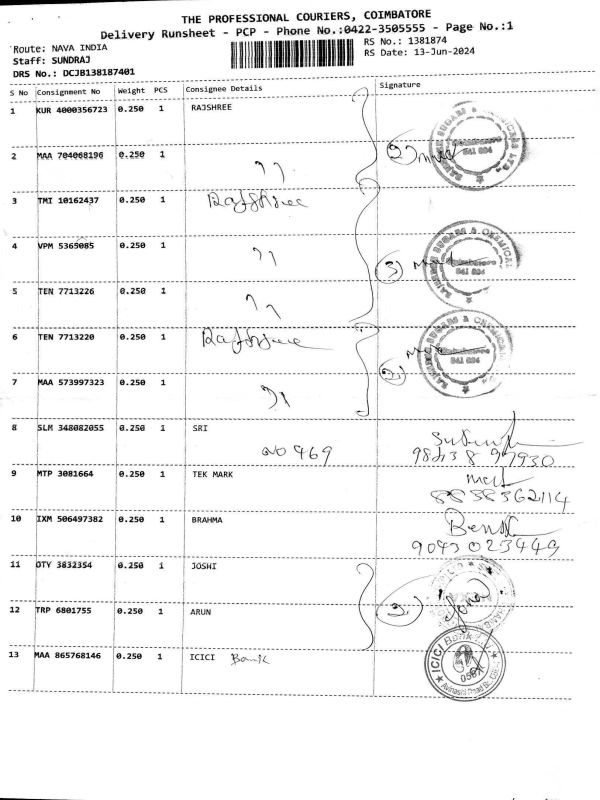 THE PROFESSIONAL COURIERS, COIMBATORE
Delivery Runsheet - PCP - Phone No.:0422-3505555 - Page No.:1
Route: NAVA INDIA
RS No.: 1381874
Staff: SUNDRAJ
RS Date: 13-Jun-2024
DRS No.: DCJB138187401
S No Consignment No Weight PCS Consignee Details Signature
1 KUR 4000356723 0.250 1 RAJSHREE
2 MAA 704068196 0.250 1 ״
2)
3 TMI 10162437 0.250 1 Rajshree
4 VPM 5369085 0.250 1 ״
3)
5 TEN 7713226 0.250 1 ״
6 TEN 7713220 0.250 1 Rajshree
2)
7 MAA 573997323 0.250 1 ״
8 SLM 348082055 0.250 1 SRI
NO 969
9 MTP 3081664 0.250 1 TEK MARK
8838362114
10 IXM 506497382 0.250 1 BRAHMA
9043023449
11 OTY 3832354 0.250 1 JOSHI
12 TRP 6801755 0.250 1 ARUN
2)
13 MAA 865768146 0.250 1 ICICI Bank
ICICI Bank